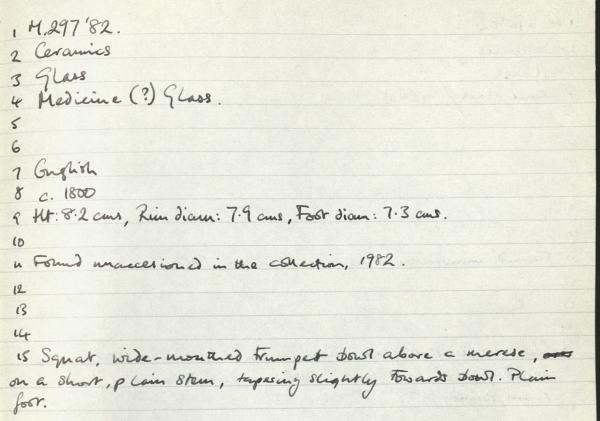 1 M.297 '82.
2 Ceramics
3 Glass
4 Medicine (?) Glass.
5
6
7 English
8 c. 1800
9 Ht: 8.2 cms, Rim diam: 7.9 cms, Foot diam: 7.3 cms.
10
11 Found unaccessioned in the collection, 1982.
12
13
14
15 Squat, wide-mouthed trumpet bowl above a merese,
on a short, plain stem, tapering slightly towards bowl. Plain
foot.